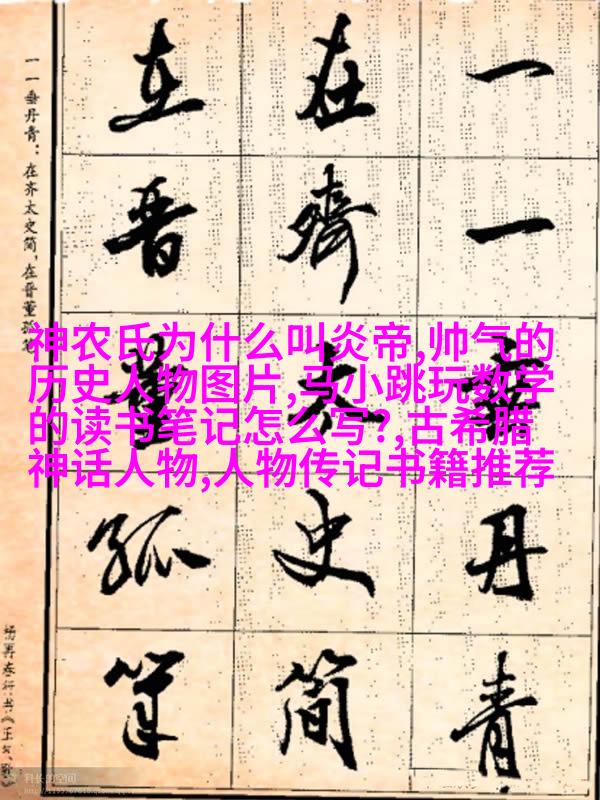 一一垂丹青
在齊太史简
在晋董狐筆
一一垂丹青：在齐太史简，在晋董狐笔
杨再春行书《正气歌》
神农氏为什么叫炎帝,帅气的
历史人物图片,马小跳玩数学
的读书笔记怎么写?,古希腊
神话人物,人物传记书籍推荐
科长的空间